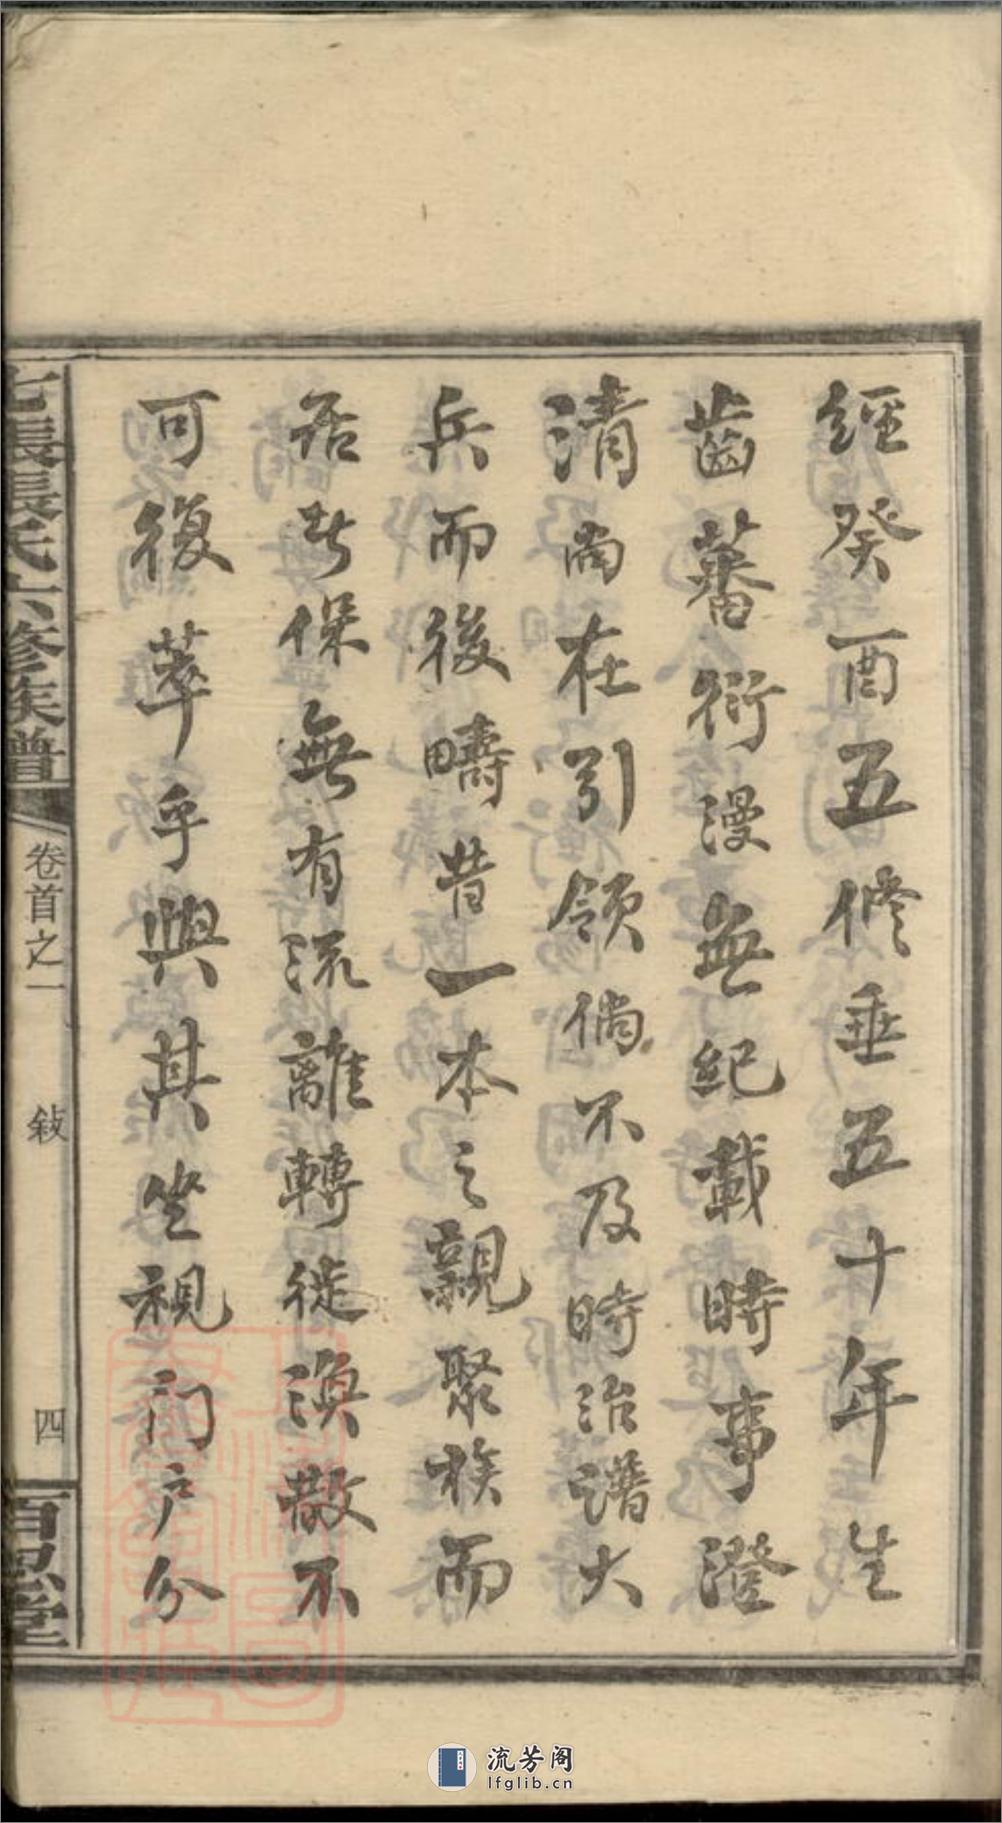 經癸酉五修垂五十年生
齒蕃衍漫無紀載時事澄
清尚在引領倘不及時治譜大
兵而後疇昔一本之親聚族而
居者保無有流離轉徙渙散不
可復萃乎與其坐視门户分
張氏六修族譜
卷首之一
敍
四
百忍堂
流芳阁
lfglib.cn